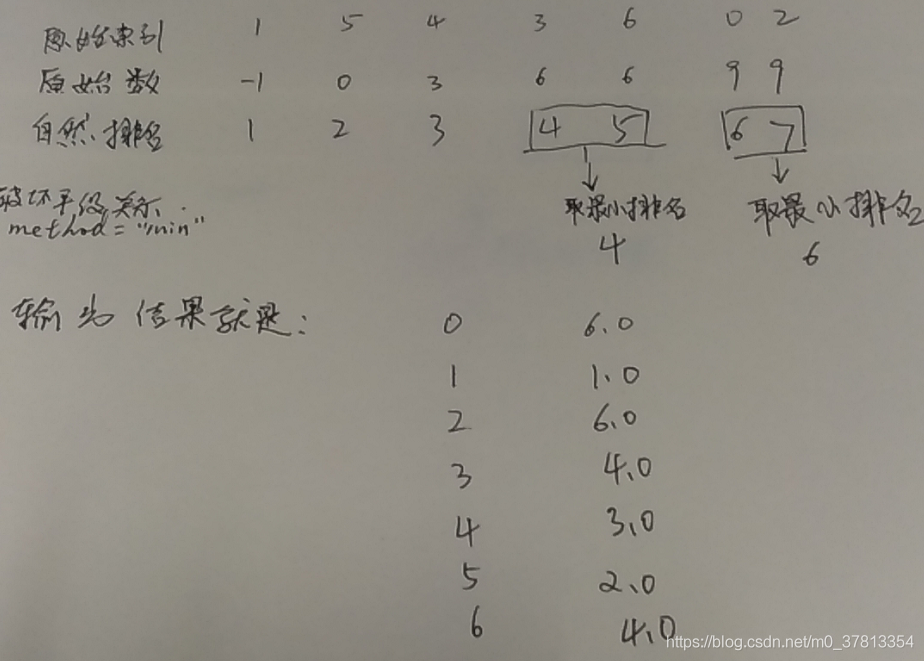 原始索引 1 5 4 3 6 0 2
原始数 -1 0 3 6 6 9 9
自然排名 1 2 3 4 5 6 7
破坏平级关系
method="min"
取最小排名 取最小排名
4 6
输出结果就是:
0 6.0
1 1.0
2 6.0
3 4.0
4 3.0
5 2.0
6 4.0
https://blog.csdn.net/m0_37813354